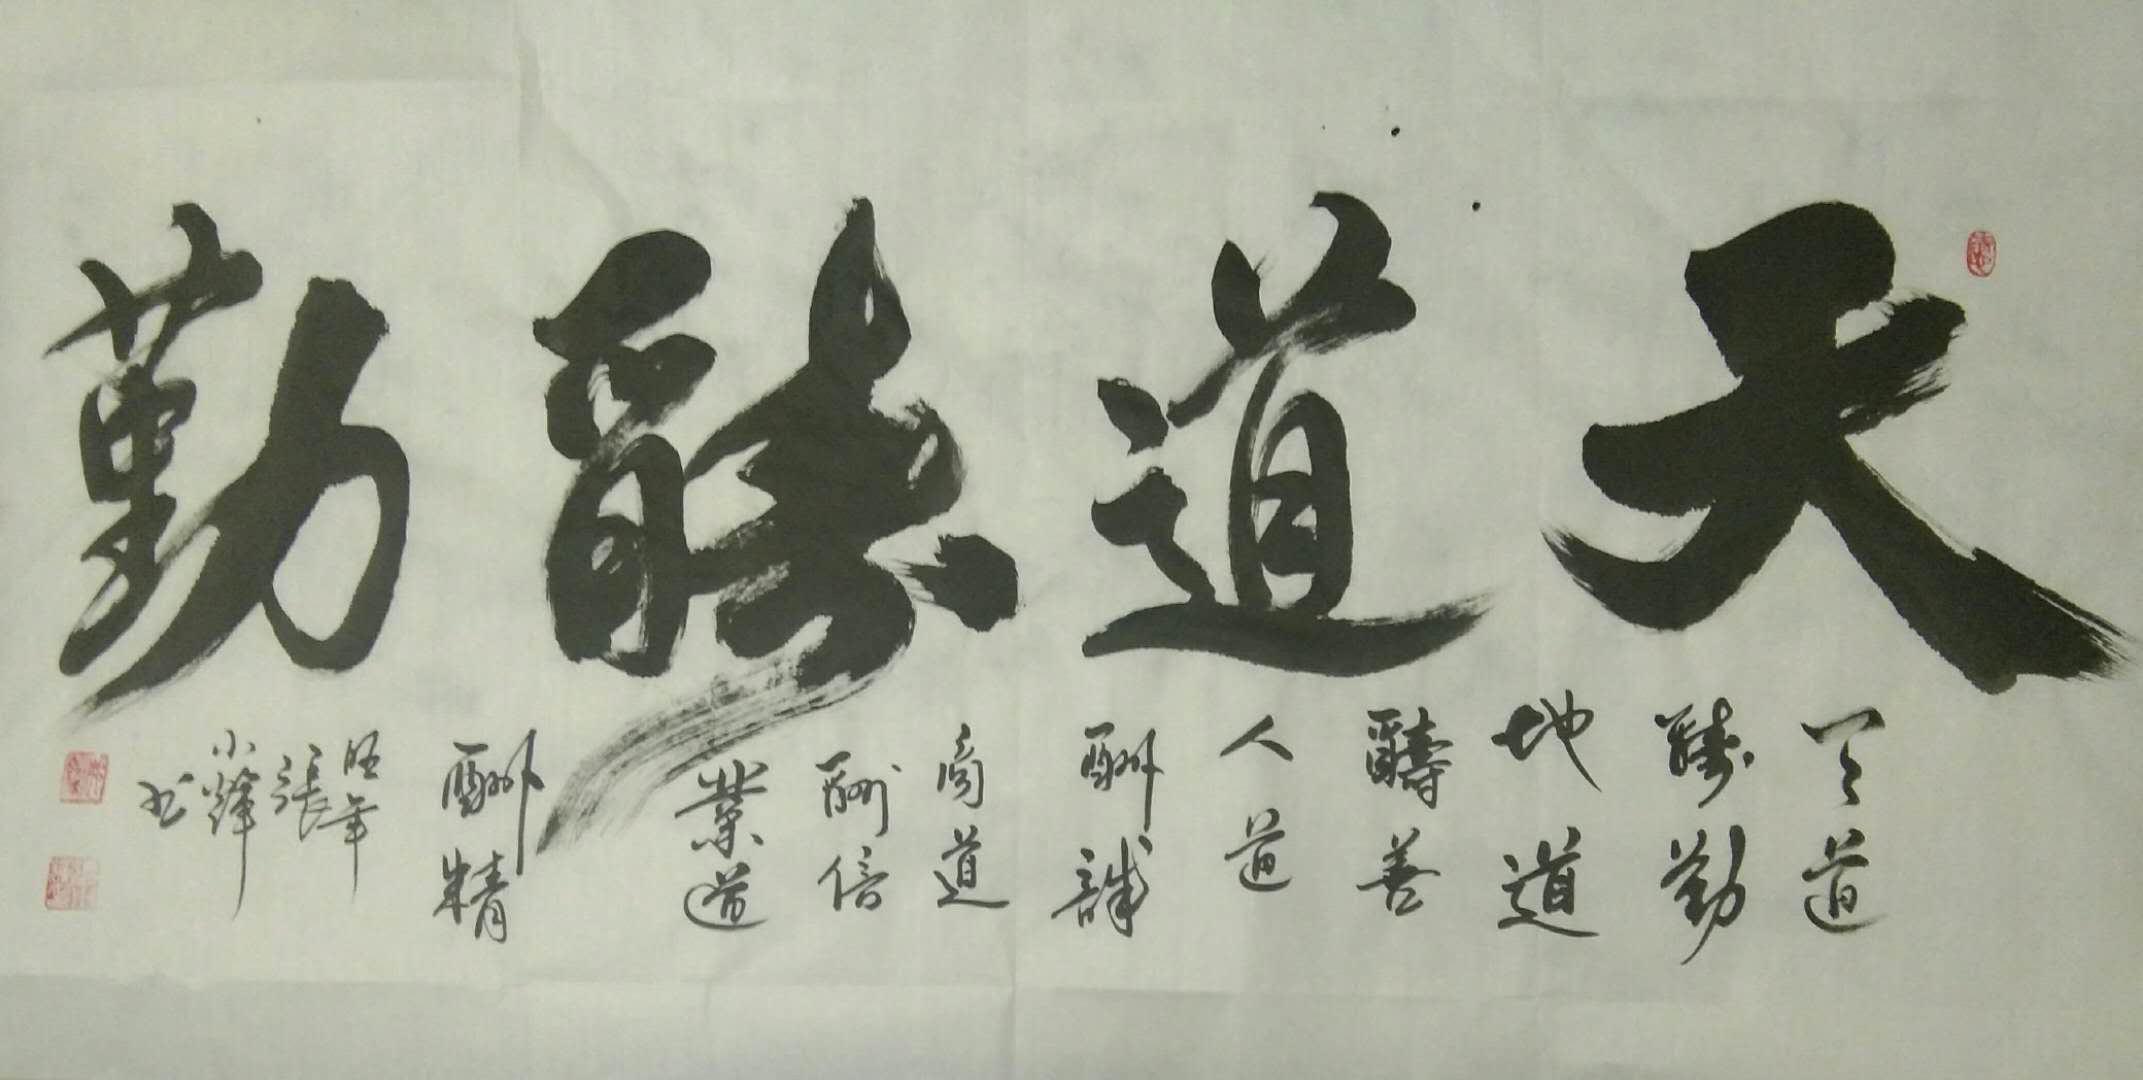 天道酬勤
天道
酬勤
地道
醻善
人道
酬誠
商道
酬信
業道
酬精
張
小輝
书